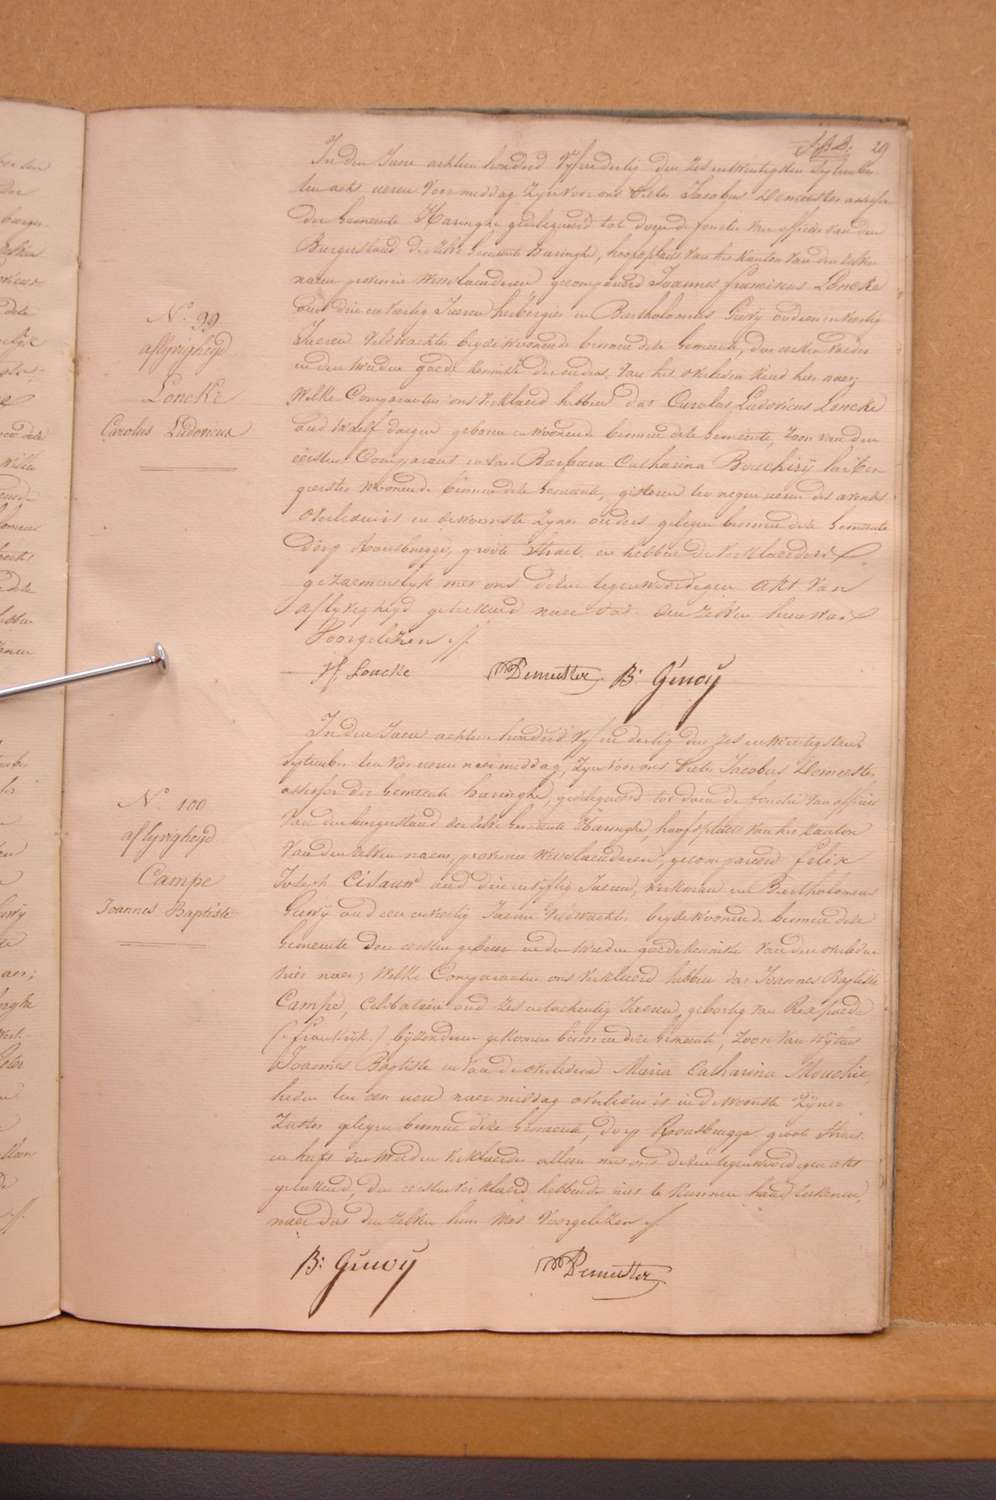 29
In den Jaere achtien honderd vyf en dertig den zes en twintigsten September
ten acht ueren voormiddag, zyn voor ons Pieter Jacobus Demeester assessor
der Gemeente Haringhe gedelegueerd tot doen de functie van officier van den
Burgerstand der zelve Gemeente Haringhe, hoofdplaets van het kanton van den zelven
naem provincie Westvlaenderen gecompareerd Joannes Franciscus Loncke
oud drie en veertig Jaeren herbergier en Bartholomeus Geuvy oud een en veertig
Jaeren veldwachter beyde woonende binnen deze Gemeente, den eersten vader
en den tweeden goede kennisse der ouders van het overleden kind hier naer;
Welke Comparanten ons verklaerd hebben dat Carolus Ludovicus Loncke
oud twaelf daegen geboren en woonende binnen deze Gemeente, zoon van den
eersten Comparant en van Barbara Catharina
woonende binnen deze Gemeente, gisteren ten negen ueren des avonds
overleden is in de wooninge zyner ouders gelegen binnen deze Gemeente
dorp Rousbrugge, groote straet, en hebben de verklaerders
gezaementlyk met ons dezen tegenwoordigen akt van
aflyvigheyd geteekend naer dat den zelven hun was
voorgelezen
N.º 99
aflyvigheyd
Loncke
Carolus Ludovicus
Jf. Loncke Demeester B: Geuvy
In den Jaere achtien honderd vyf en dertig den zes en twintigsten
September ten vier ueren naermiddag, zyn voor ons Pieter Jacobus Demeester
assessor der Gemeente Haringhe, gedelegueerd tot doen de functie van officier
van den burgerstand der zelve Gemeente Haringhe, hoofdplaets van het kanton
van den zelven naem, provincie Westvlaenderen, gecompareerd Felix
Joseph oud drie en vyftig Jaeren, werkman en Bartholomeus
Geuvy oud een en veertig Jaeren veldwachter beyde woonende binnen deze
Gemeente den eersten gebuer en den tweeden goede kennisse van den overleden
hier naer; Welke Comparanten ons verklaerd hebben dat Joannes Baptiste
Campe, Celibatair oud zes en tachentig Jaeren, geboortig van Rexpoede
(Frankryk) byzonderen gekomen binnen deze Gemeente, zoon van wylen
Joannes Baptiste en van de overledene Maria Catharina
heden ten een uer naermiddag overleden is in de wooninge zyner
zuster gelegen binnen deze Gemeente, dorp Rousbrugge groote straet
en heeft den tweeden verklaerder alleen met ons dezen tegenwoordigen akt
geteekend, den eersten verklaerd hebbende niet te kunnen handteekenen,
naer dat den zelven hun was voorgelezen
N.º 100
aflyvigheyd
Campe
Joannes Baptiste
B: Geuvy Demeester